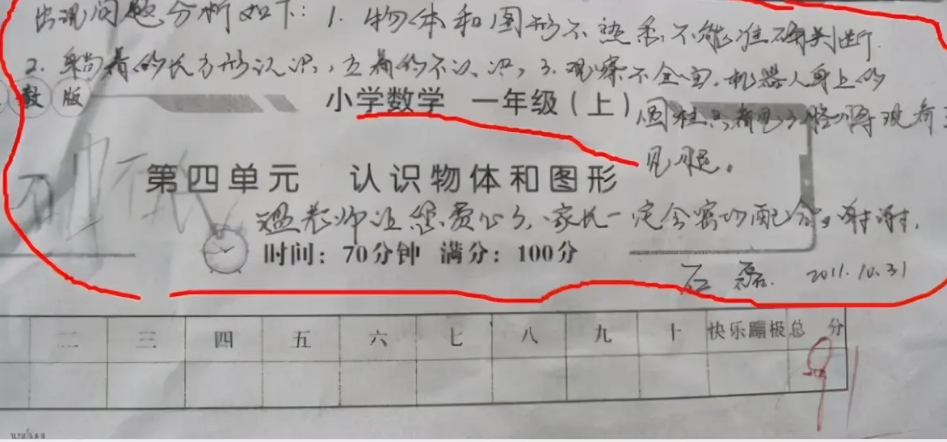 出现问题分析如下：1. 物体和图形不熟悉不能准确判断
2. 躺着的长方形认识，立着的不认识，3. 观察不全面，机器人身上的
教 版
小学数学 一年级（上）
圆柱只看电了胳膊没看
见腿。
第四单元 认识物体和图形
温老师让您费心了，家长一定会密切配合。谢谢，
时间：70分钟 满分：100分
石磊. 2011.10.31
二 三 四 五 六 七 八 九 十 快乐蹦极 总 分
91